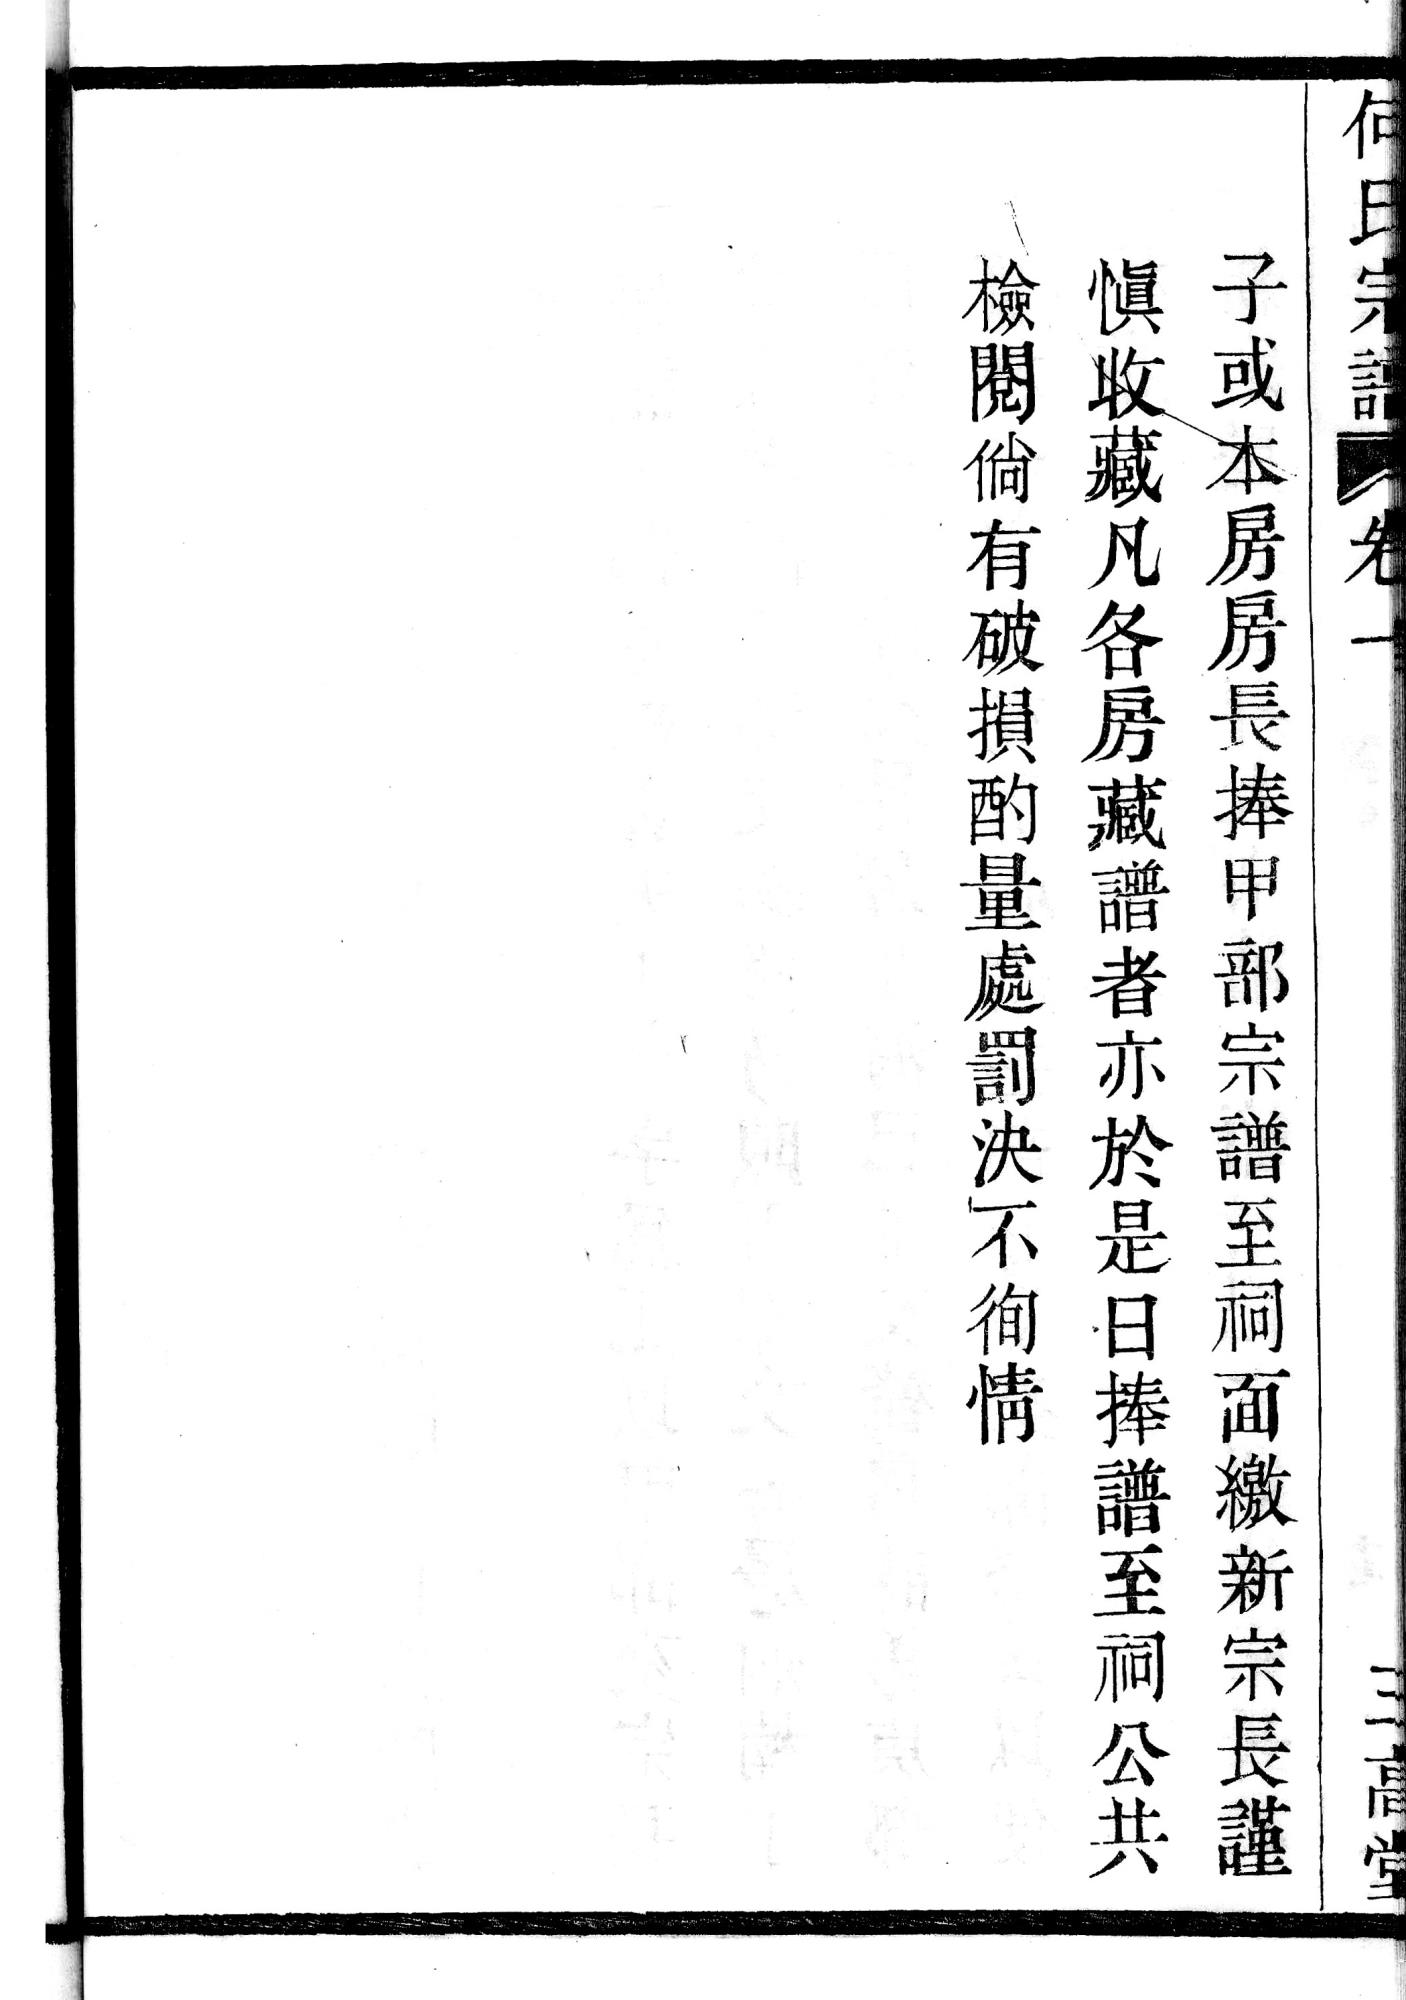 何氏宗譜 卷一 三高堂
子或本房房長捧甲部宗譜至祠面繳新宗長謹
愼收藏凡各房藏譜者亦於是日捧譜至祠公共
檢閱倘有破損酌量處罰決不徇情